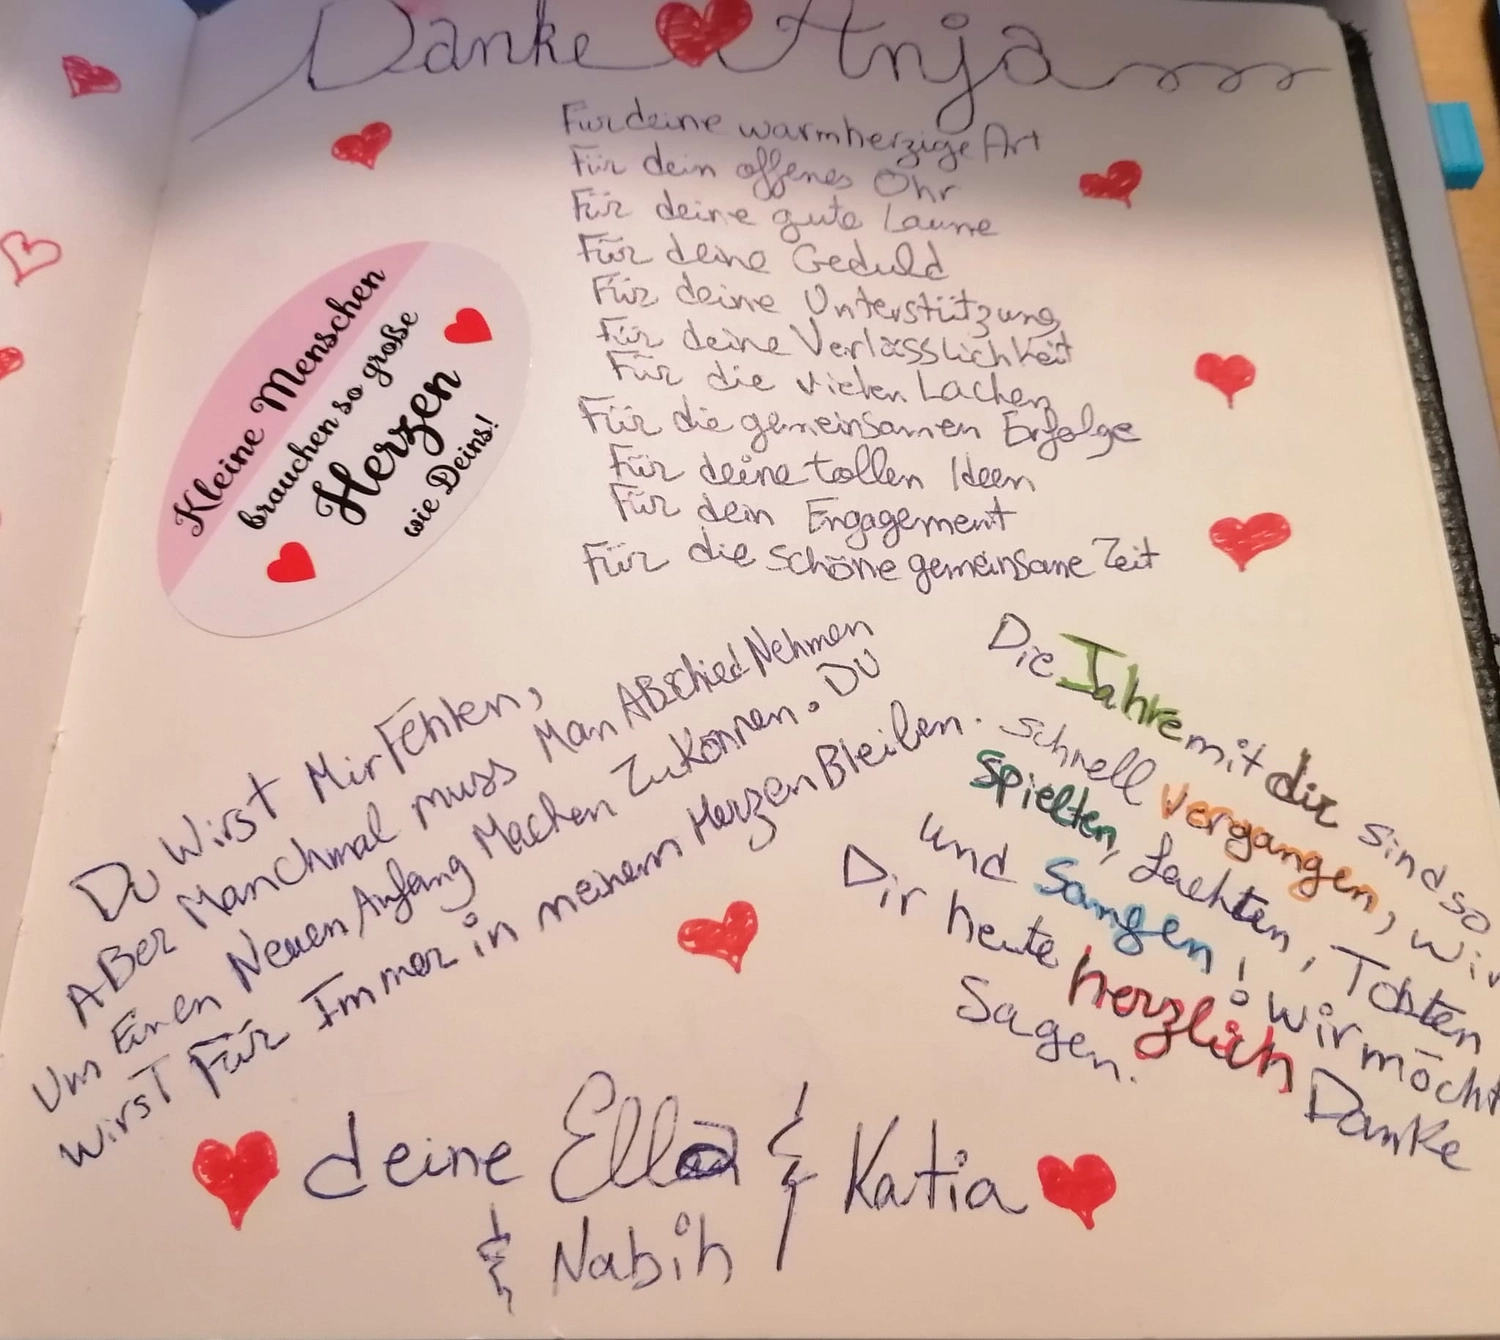 Danke Anja
Für deine warmherzige Art
Für dein offenes Ohr
Für deine gute Laune
Für deine Geduld
Für deine Unterstützung
Für deine Verlässlichkeit
Für die vielen Lachen
Für die gemeinsamen Erfolge
Für deine tollen Ideen
Für dein Engagement
Für die schöne gemeinsame Zeit
Kleine Menschen
brauchen so große
Herzen
wie Deins!
Du Wirst Mir Fehlen,
ABer Manchmal muss Man ABschied Nehmen
Um Einen Neuen Anfang Machen Zu Können. DU
wirst Für Immer in meinem Herzen Bleiben.
Die Jahre mit dir sind so
schnell vergangen, wir
spielten, lachten, Tobten
und sangen! wir möcht
Dir heute herzlich Danke
Sagen.
deine Ella & Katia
& Nabih